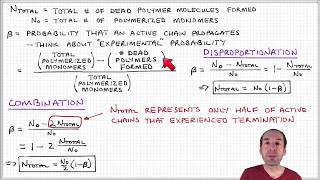 NTOTAL = TOTAL # OF DEAD POLYMER MOLECULES FORMED
No = TOTAL # OF POLYMERIZED MONOMERS
β = PROBABILITY THAT AN ACTIVE CHAIN PROPAGATES
- THINK ABOUT "EXPERIMENTAL" PROBABILITY
= (TOTAL POLYMERIZED MONOMERS) - (# DEAD POLYMERS FORMED)
(TOTAL POLYMERIZED MONOMERS)
DISPROPORTIONATION
β = No - NTOTAL
No
= 1 - NTOTAL
No
⇒ NTOTAL = No (1-β)
COMBINATION
β = No - 2 NTOTAL
No
= 1 - 2 NTOTAL
No
⇒ NTOTAL = No/2 (1-β)
NTOTAL REPRESENTS ONLY HALF OF ACTIVE
CHAINS THAT EXPERIENCED TERMINATION